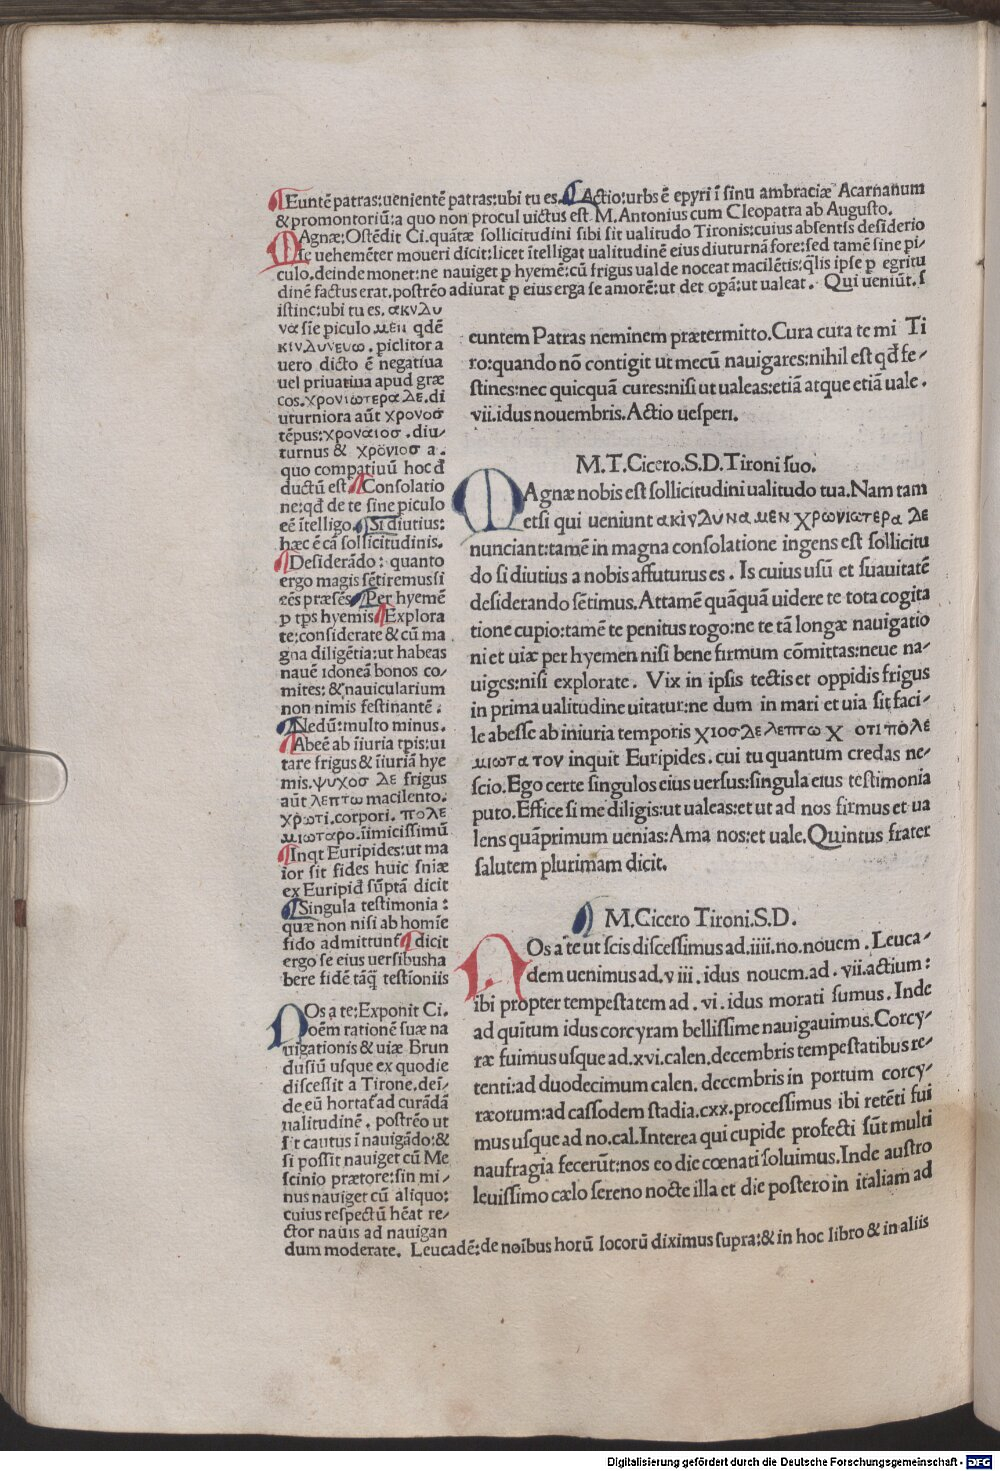 Euntē patras:uenientē patras:ubi tu es. Actio:urbs ē epyri ī sinu ambraciæ Acarnanum
& promontoriū:a quo non procul uictus est M.Antonius cum Cleopatra ab Augusto.
MAgnæ:Ostēdit Ci.quātæ sollicitudini sibi sit ualitudo Tironis:cuius absentis desiderio
se uehemēter moueri dicit:licet ītelligat ualitudinē eius diuturnā fore:sed tamē sine pi/
culo.deinde monet:ne nauiget p hyemē:cū frigus ualde noceat macilētis:qlis ipse p egritu
dinē factus erat.postrēo adiurat p eius erga se amorē:ut det opā:ut ualeat. Qui ueniūt.s
istinc:ubi tu es. ακνλυ
να sīe piculo μεν qdē
κινλυνευω. piclitor a
uero dicto ē negatiua
uel priuatiua apud græ
cos.χρονιωτερα λε.di
uturniora aūt χρονοσ
tēpus:χροναιοσ.diu/
turnus & χρόνιοσ a.
quo compatiuū hoc đ
ductū est. Consolatio
ne:qđ de te sine piculo
eē ītelligo. Si diutius:
hæc ē cā sollicitudinis.
Desiderādo: quanto
ergo magis sētiremus si
eēs præsēs. Per hyemē
p tps hyemis. Explora
te:considerate & cū ma
gna diligētia:ut habeas
nauē idoneā bonos co/
mites: & nauicularium
non nimis festinantē.
Nedū:multo minus.
Abeē ab īiuria tpis:ui
tare frigus & īiuriā hye
mis.ψυχοσ λε frigus
aūt λεπτω macilento.
χρωτι.corpori. πολε
μιωταρο.īimicissimū
Inqt Euripides:ut ma
ior sit fides huic sniæ
ex Euripiđ sūptā dicit
Singula testimonia:
quæ non nisi ab homīe
fido admittunt. dicit
ergo se eius uersibus ha
bere fidē tāq̄ testīoniis
NOs a te:Exponit Ci.
oēm rationē suæ na
uigationis & uiæ Brun
dusiū usque ex quo die
discessit a Tirone.deī/
de eū hortat ad curādā
ualitudinē. postrēo ut
sit cautus ī nauigādo:&
si possit nauiget cū Me
scinio prætore:sin mi/
nus nauiget cū aliquo:
cuius respectū hēat re/
ctor nauis ad nauigan
dum moderate. Leucadē:de noībus horū locorū diximus supra:& in hoc libro & in aliis
euntem Patras neminem prætermitto.Cura cura te mi Ti
ro:quando nō contigit ut mecū nauigares:nihil est qđ fe/
stines:nec quicquā cures:nisi ut ualeas:etiā atque etiā uale.
vii.idus nouembris.Actio uesperi.
M.T.Cicero.S.D.Tironi suo.
MAgnæ nobis est sollicitudini ualitudo tua.Nam tam
etsi qui ueniunt ακινλυνα μεν χρωνιωτερα λε
nunciant:tamē in magna consolatione ingens est sollicitu
do si diutius a nobis affuturus es. Is cuius usū et suauitatē
desiderando sētimus.Attamē quāquā uidere te tota cogita
tione cupio:tamē te penitus rogo:ne te tā longæ nauigatio
ni et uiæ per hyemen nisi bene firmum cōmittas:neue na/
uiges:nisi explorate. Vix in ipsis tectis et oppidis frigus
in prima ualitudine uitatur:ne dum in mari et uia sit faci/
le abesse ab iniuria temporis χιοσλε λεπτω χ οτι πολε
μιωτα τον inquit Euripides.cui tu quantum credas ne/
scio.Ego certe singulos eius uersus:singula eius testimonia
puto.Effice si me diligis:ut ualeas:et ut ad nos firmus et ua
lens quāprimum uenias:Ama nos:et uale.Quintus frater
salutem plurimam dicit.
M.Cicero Tironi.S.D.
NOs a te ut scis discessimus ad.iiii.no.nouem. Leuca/
dem uenimus ad.viii.idus nouem.ad.vii.actium:
ibi propter tempestatem ad.vi.idus morati sumus. Inde
ad quītum idus corcyram bellissime nauigauimus.Corcy/
ræ fuimus usque ad.xvi.calen.decembris tempestatibus re/
tenti:ad duodecimum calen. decembris in portum corcy/
ræorum:ad cassodem stadia.cxx.processimus ibi retēti fui
mus usque ad no.cal.Interea qui cupide profecti sūt multi
naufragia fecerūt:nos eo die cœnati soluimus.Inde austro
leuissimo cælo sereno nocte illa et die postero in italiam ad
Digitalisierung gefördert durch die Deutsche Forschungsgemeinschaft - DFG